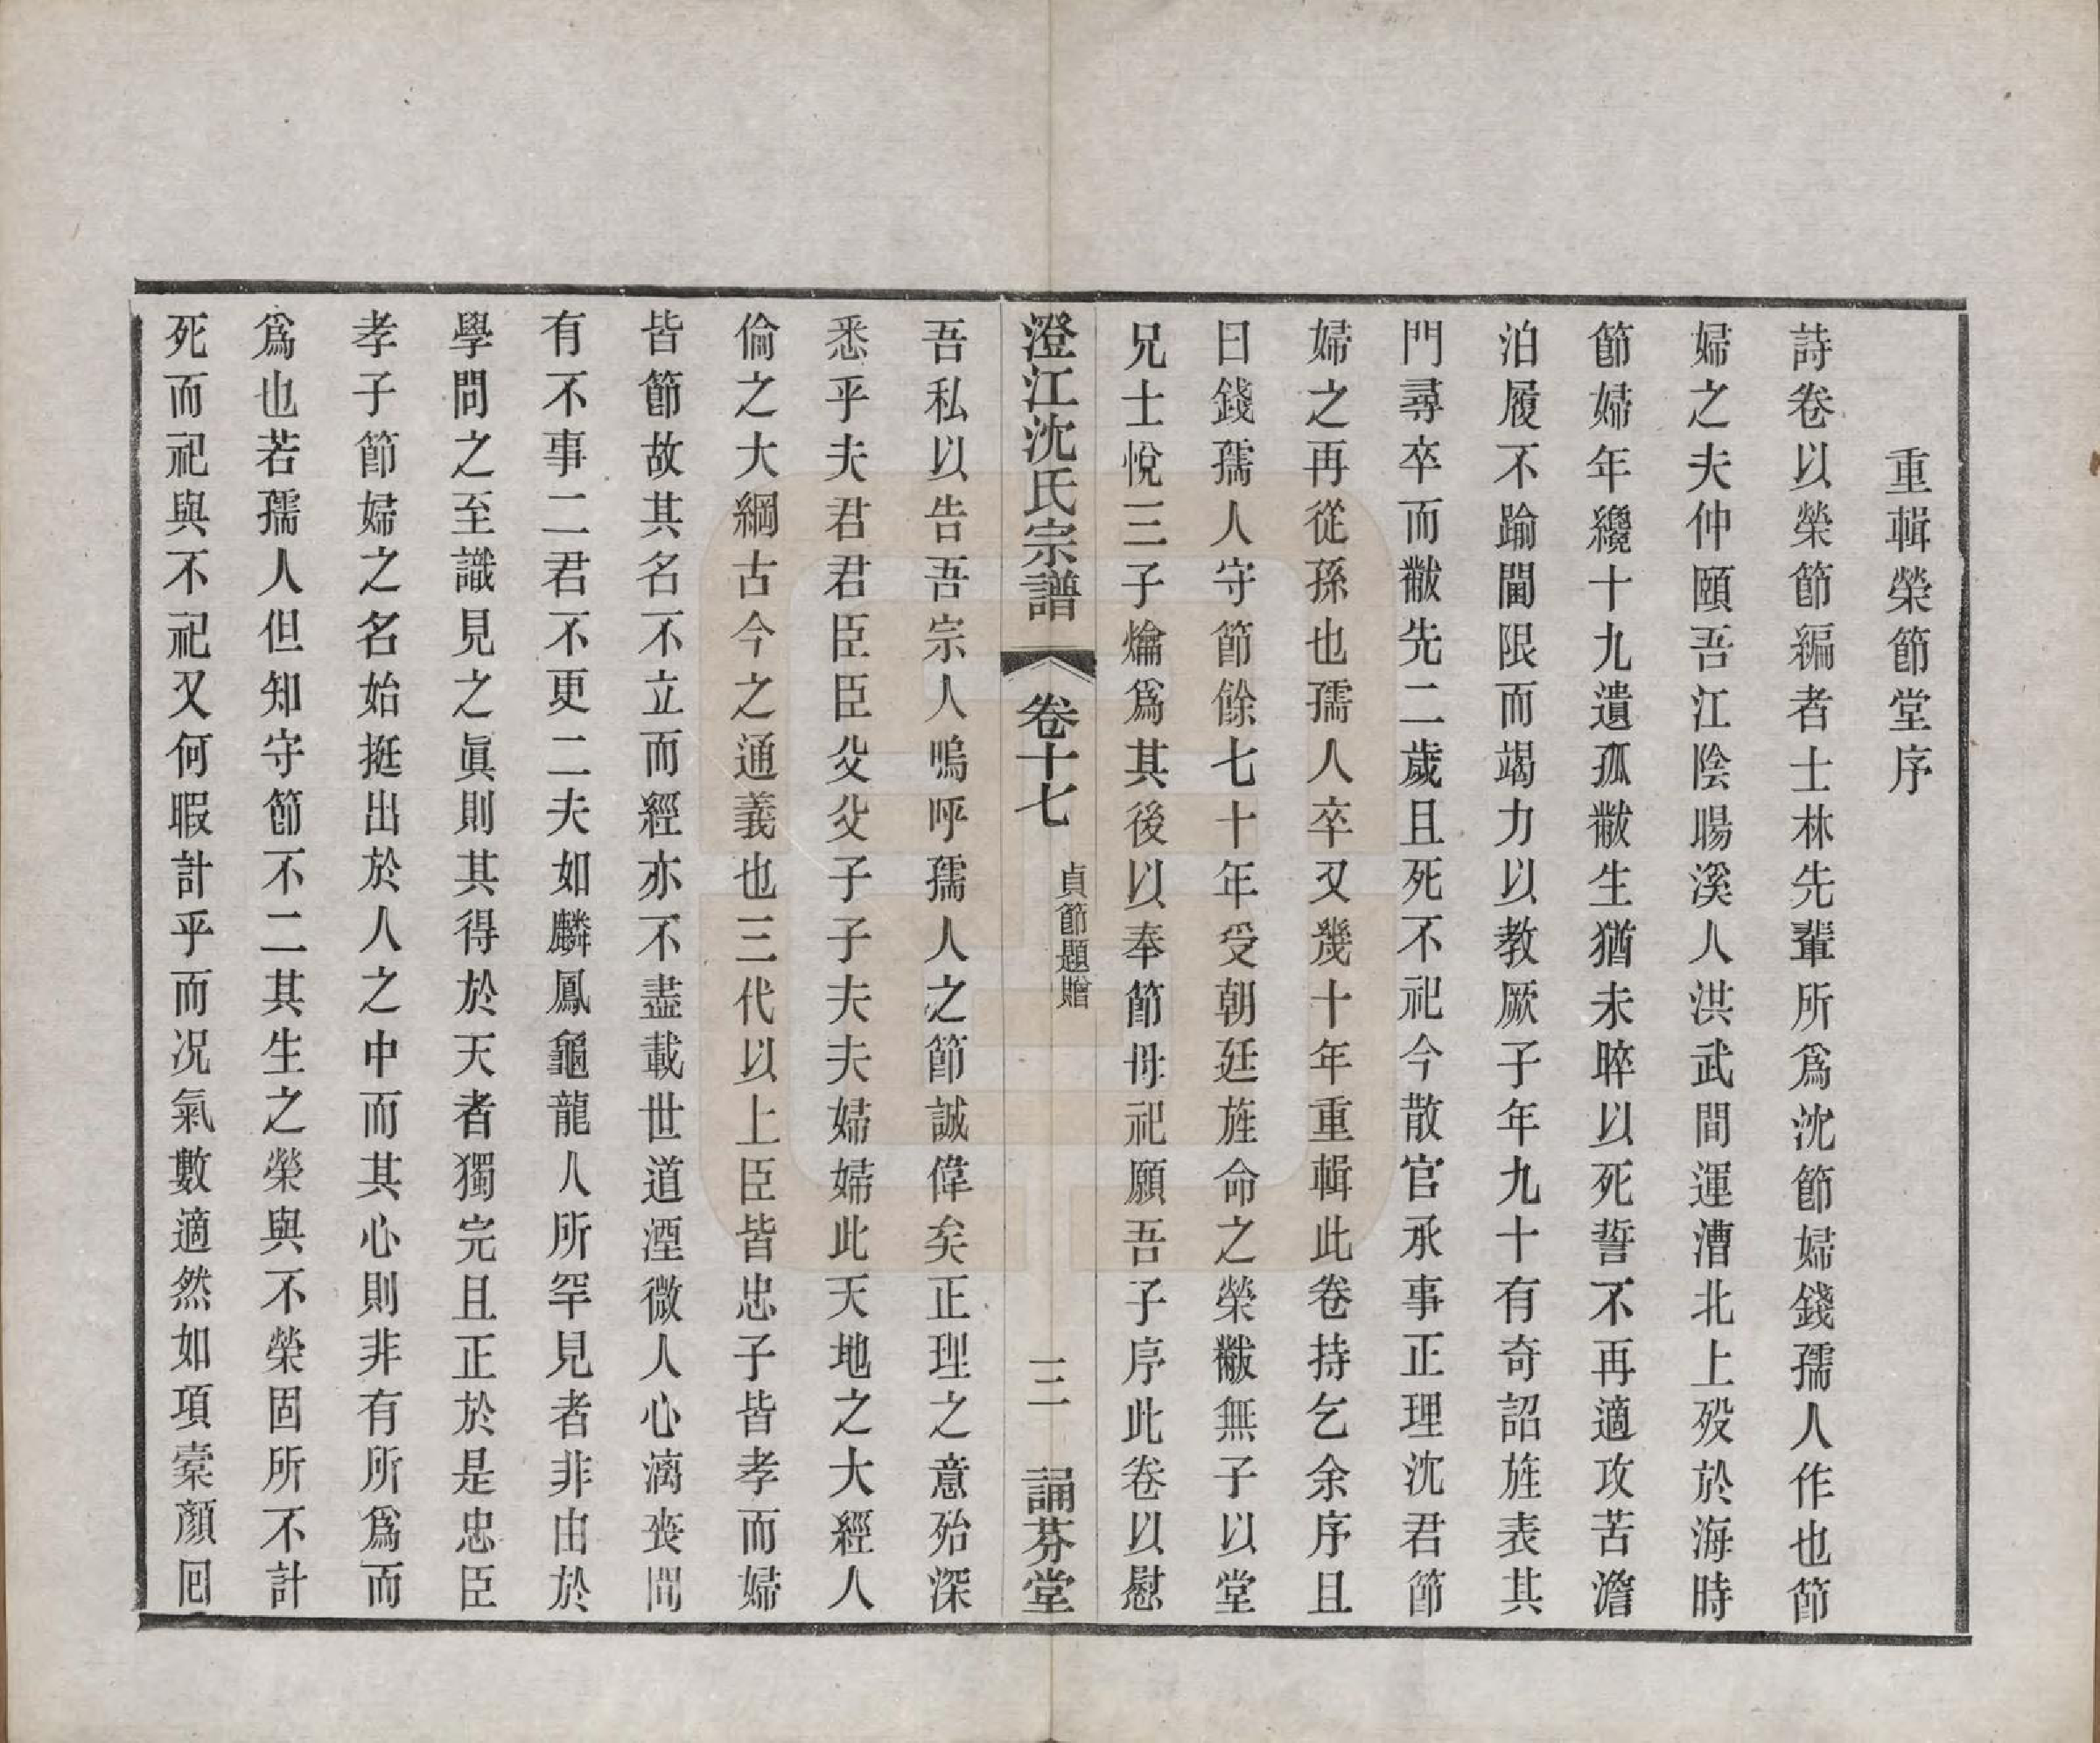 重輯榮節堂序
詩卷以榮節編者士林先輩所爲沈節婦錢孺人作也節
婦之夫仲頤吾江陰暘溪人洪武間運漕北上歿於海時
節婦年纔十九遺孤黻生猶未晬以死誓不再適攻苦澹
泊履不踰閫限而竭力以教厥子年九十有奇詔旌表其
門尋卒而黻先二歲且死不祀今散官承事正理沈君節
婦之再從孫也孺人卒又幾十年重輯此卷持乞余序且
曰錢孺人守節餘七十年受朝廷旌命之榮黻無子以堂
兄士悅三子爚爲其後以奉節母祀願吾子序此卷以慰
澄江沈氏宗譜 卷十七 貞節題贈 三 誦芬堂
吾私以告吾宗人嗚呼孺人之節誠偉矣正理之意殆深
悉乎夫君君臣臣父父子子夫夫婦婦此天地之大經人
倫之大綱古今之通義也三代以上臣皆忠子皆孝而婦
皆節故其名不立而經亦不盡載世道湮微人心漓喪間
有不事二君不更二夫如麟鳳龜龍人所罕見者非由於
學問之至識見之眞則其得於天者獨完且正於是忠臣
孝子節婦之名始挺出於人之中而其心則非有所爲而
爲也若孺人但知守節不二其生之榮與不榮固所不計
死而祀與不祀又何暇計乎而况氣數適然如項槖顏囘